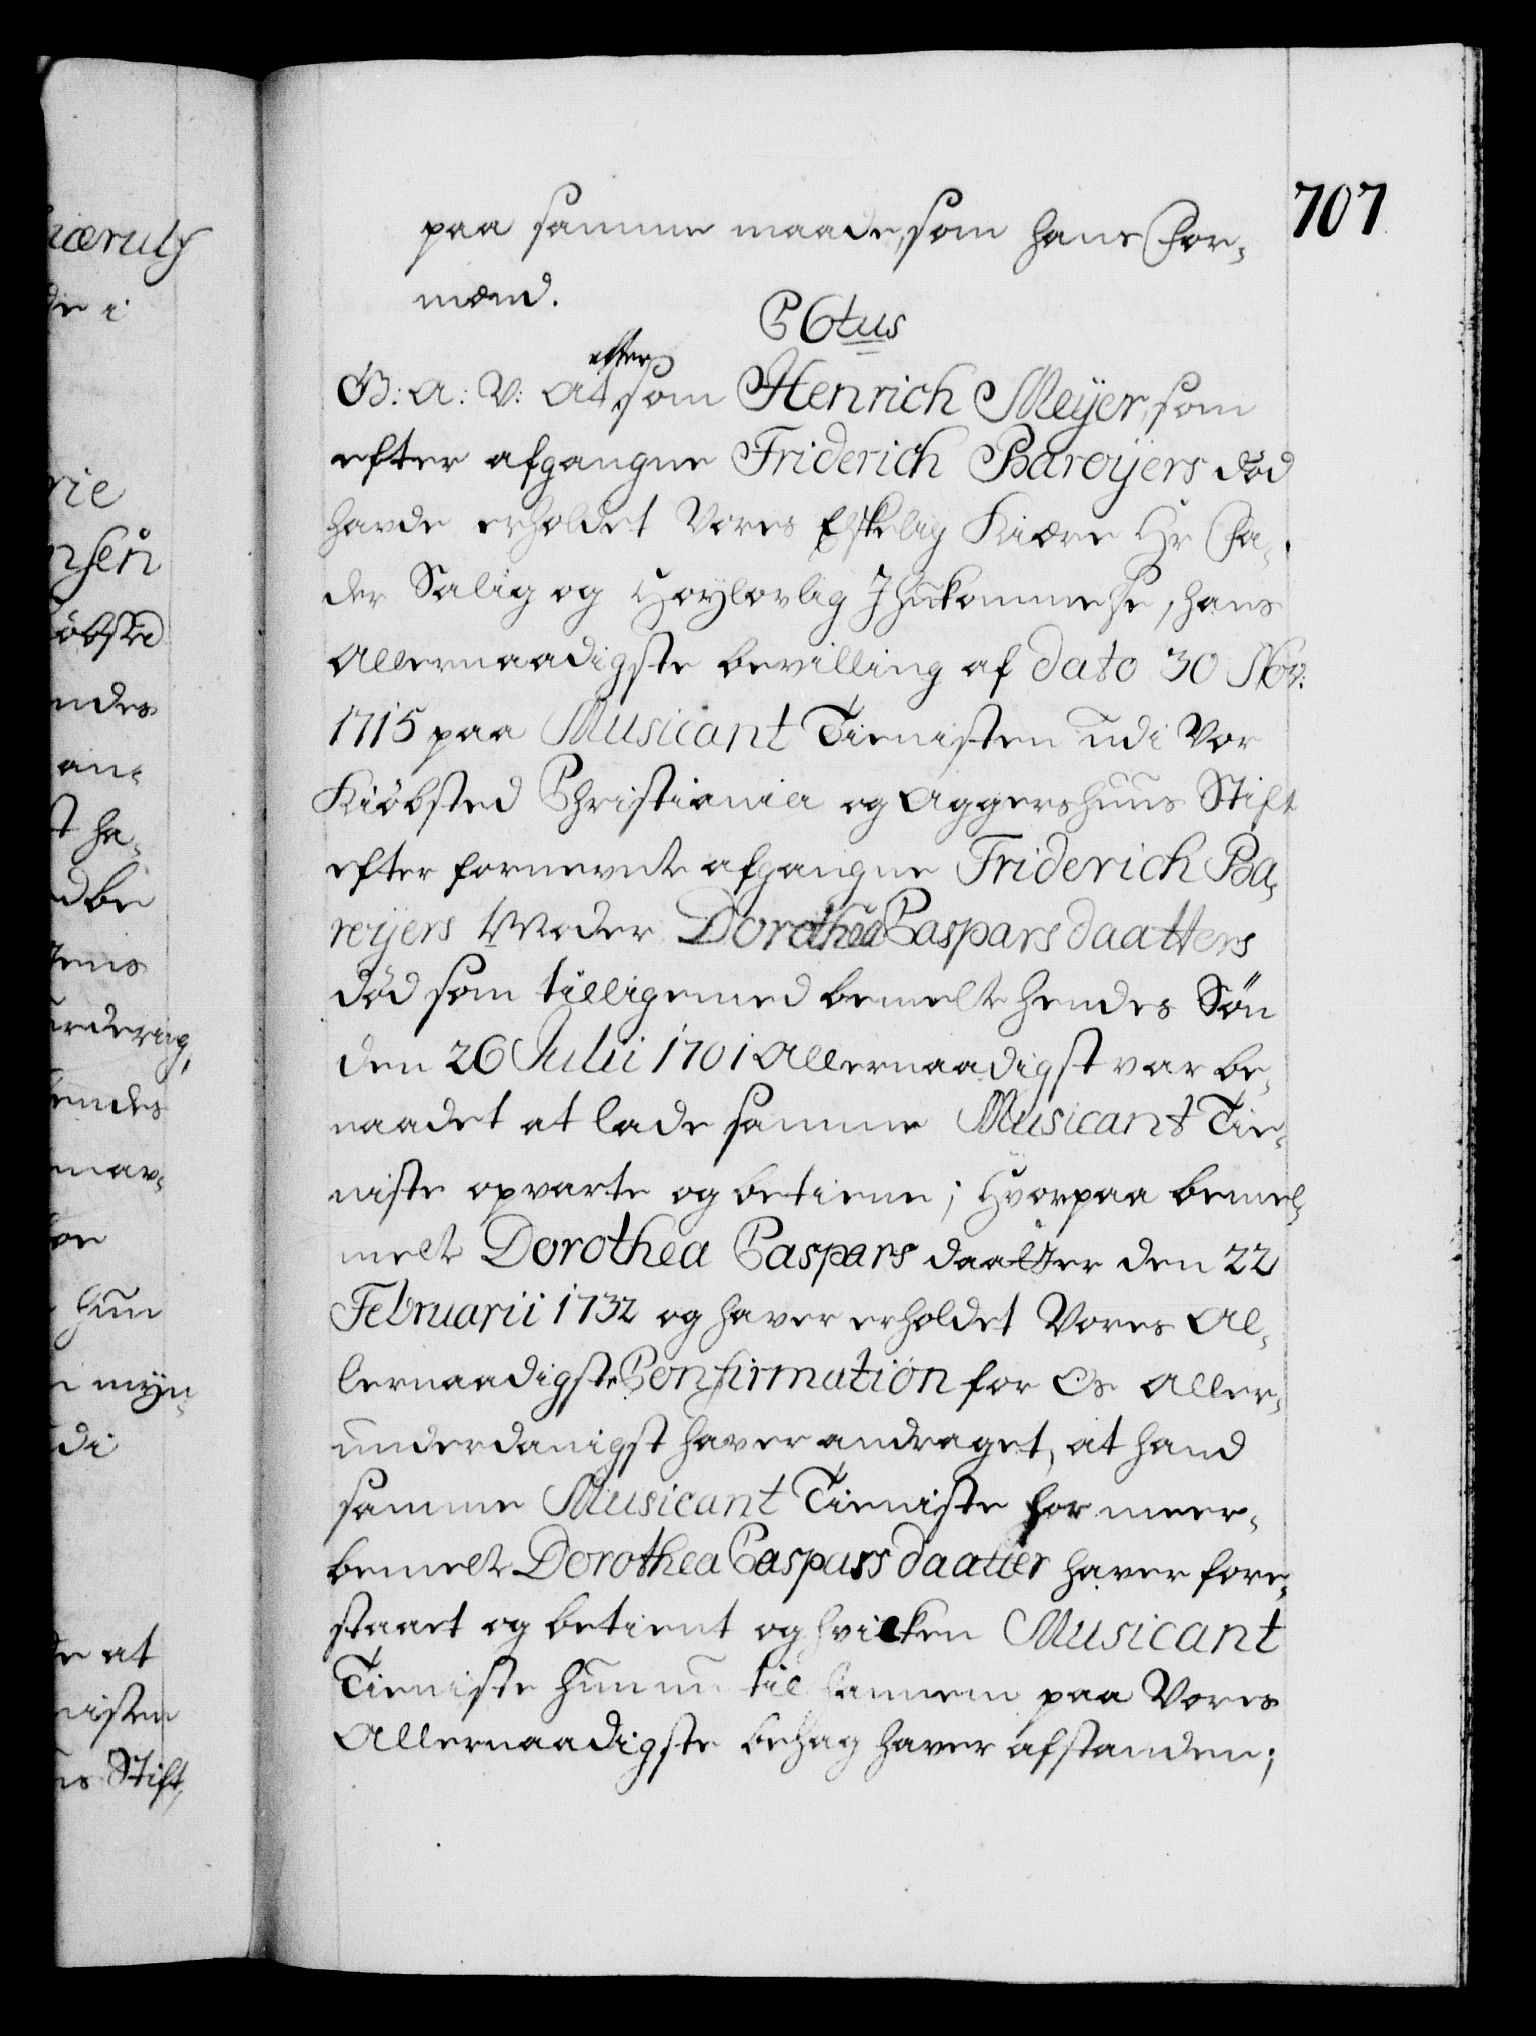 707
paa samme maade, som hans For¬
mænd.
C 6tus
G: A: V: At efter som Henrich Meÿer, som
efter afgangne Friderich Baroÿers død
havde erholdet Vores Elskelig Kiære Hr Fa¬
der Salig og Høylovlig Ihukommelse, hans
Allernaadigste bevilling af dato 30 Nov:
1715 paa Musicant Tienisten udi Vor
Kiöbsted Christiania og Aggershuus Stift
efter fornevnte afgangne Friderich Ba¬
roÿers Moder Dorothea Caspars daatters
död som tilligemed bemelte hendes Sön
den 26 Julii 1701 Allernaadigst var be¬
naadet at lade samme Musicant Tie¬
niste opvarte og betiene; Hvorpaa bemel¬
melt Dorothea Caspars daatter den 22
Februarii 1732 og haver erholdet Vores Al¬
lernaadigste Confirmation for Os Aller¬
underdanigst haver andraget, at hand
samme Musicant Tieniste for meer¬
bemelt Dorothea Caspars daatter haver fore¬
staaet og betient og hvilken Musicant
Tieniste hun nu til hannem paa Vores
Allernaadigste behag haver afstanden;
iæruls
de i
rie
nsen
iöbsted
endes
an¬
st ha¬
d be
urdering,
hendes
hun
myn¬
udi
de at
nisten
us Stift,